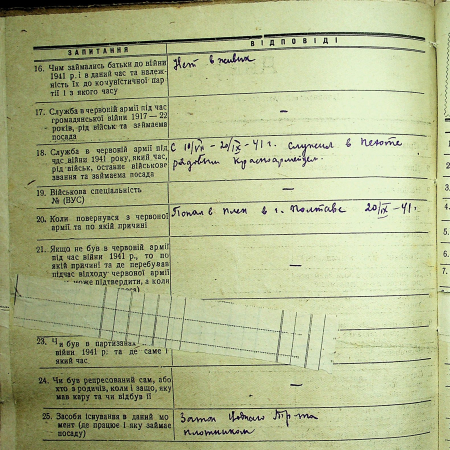 ЗАПИТАННЯ
ВІДПОВІДІ
16. Чим займались батьки до війни
1941 р. і в даний час та належ-
ність їх до комуністичної пар-
тії і з якого часу
Нет в живых
17. Служба в червоній армії під час
громадянської війни 1917 — 22
років, рід військ та займаєма
посада
—
18. Служба в червоній армії під
час війни 1941 року, який час,
рід військ, останнє військове
звання та займаєма посада
С 10/VII – 20/IX – 41 г. служил в пехоте
рядовым красноармейцем.
19. Військова спеціальність
№ (ВУС)
—
20. Коли повернувся з червоної
армії та по якій причині
Попал в плен в г. Полтаве 20/IX – 41.
21. Якщо не був в червоній армії
під час війни 1941 р., то по
якій причині та де перебував
підчас відходу червоної армії
може підтвердити, а коли
23. Чи був в партизана
війни 1941 р. та де саме і
який час
—
24. Чи був репресований сам, або
хто з родичів, коли і защо, яку
мав кару та чи відбув її
—
25. Засоби існування в даний мо-
мент (де працює і яку займає
посаду)
плотником
1.
2.
3.
4.
5.
6.
7.